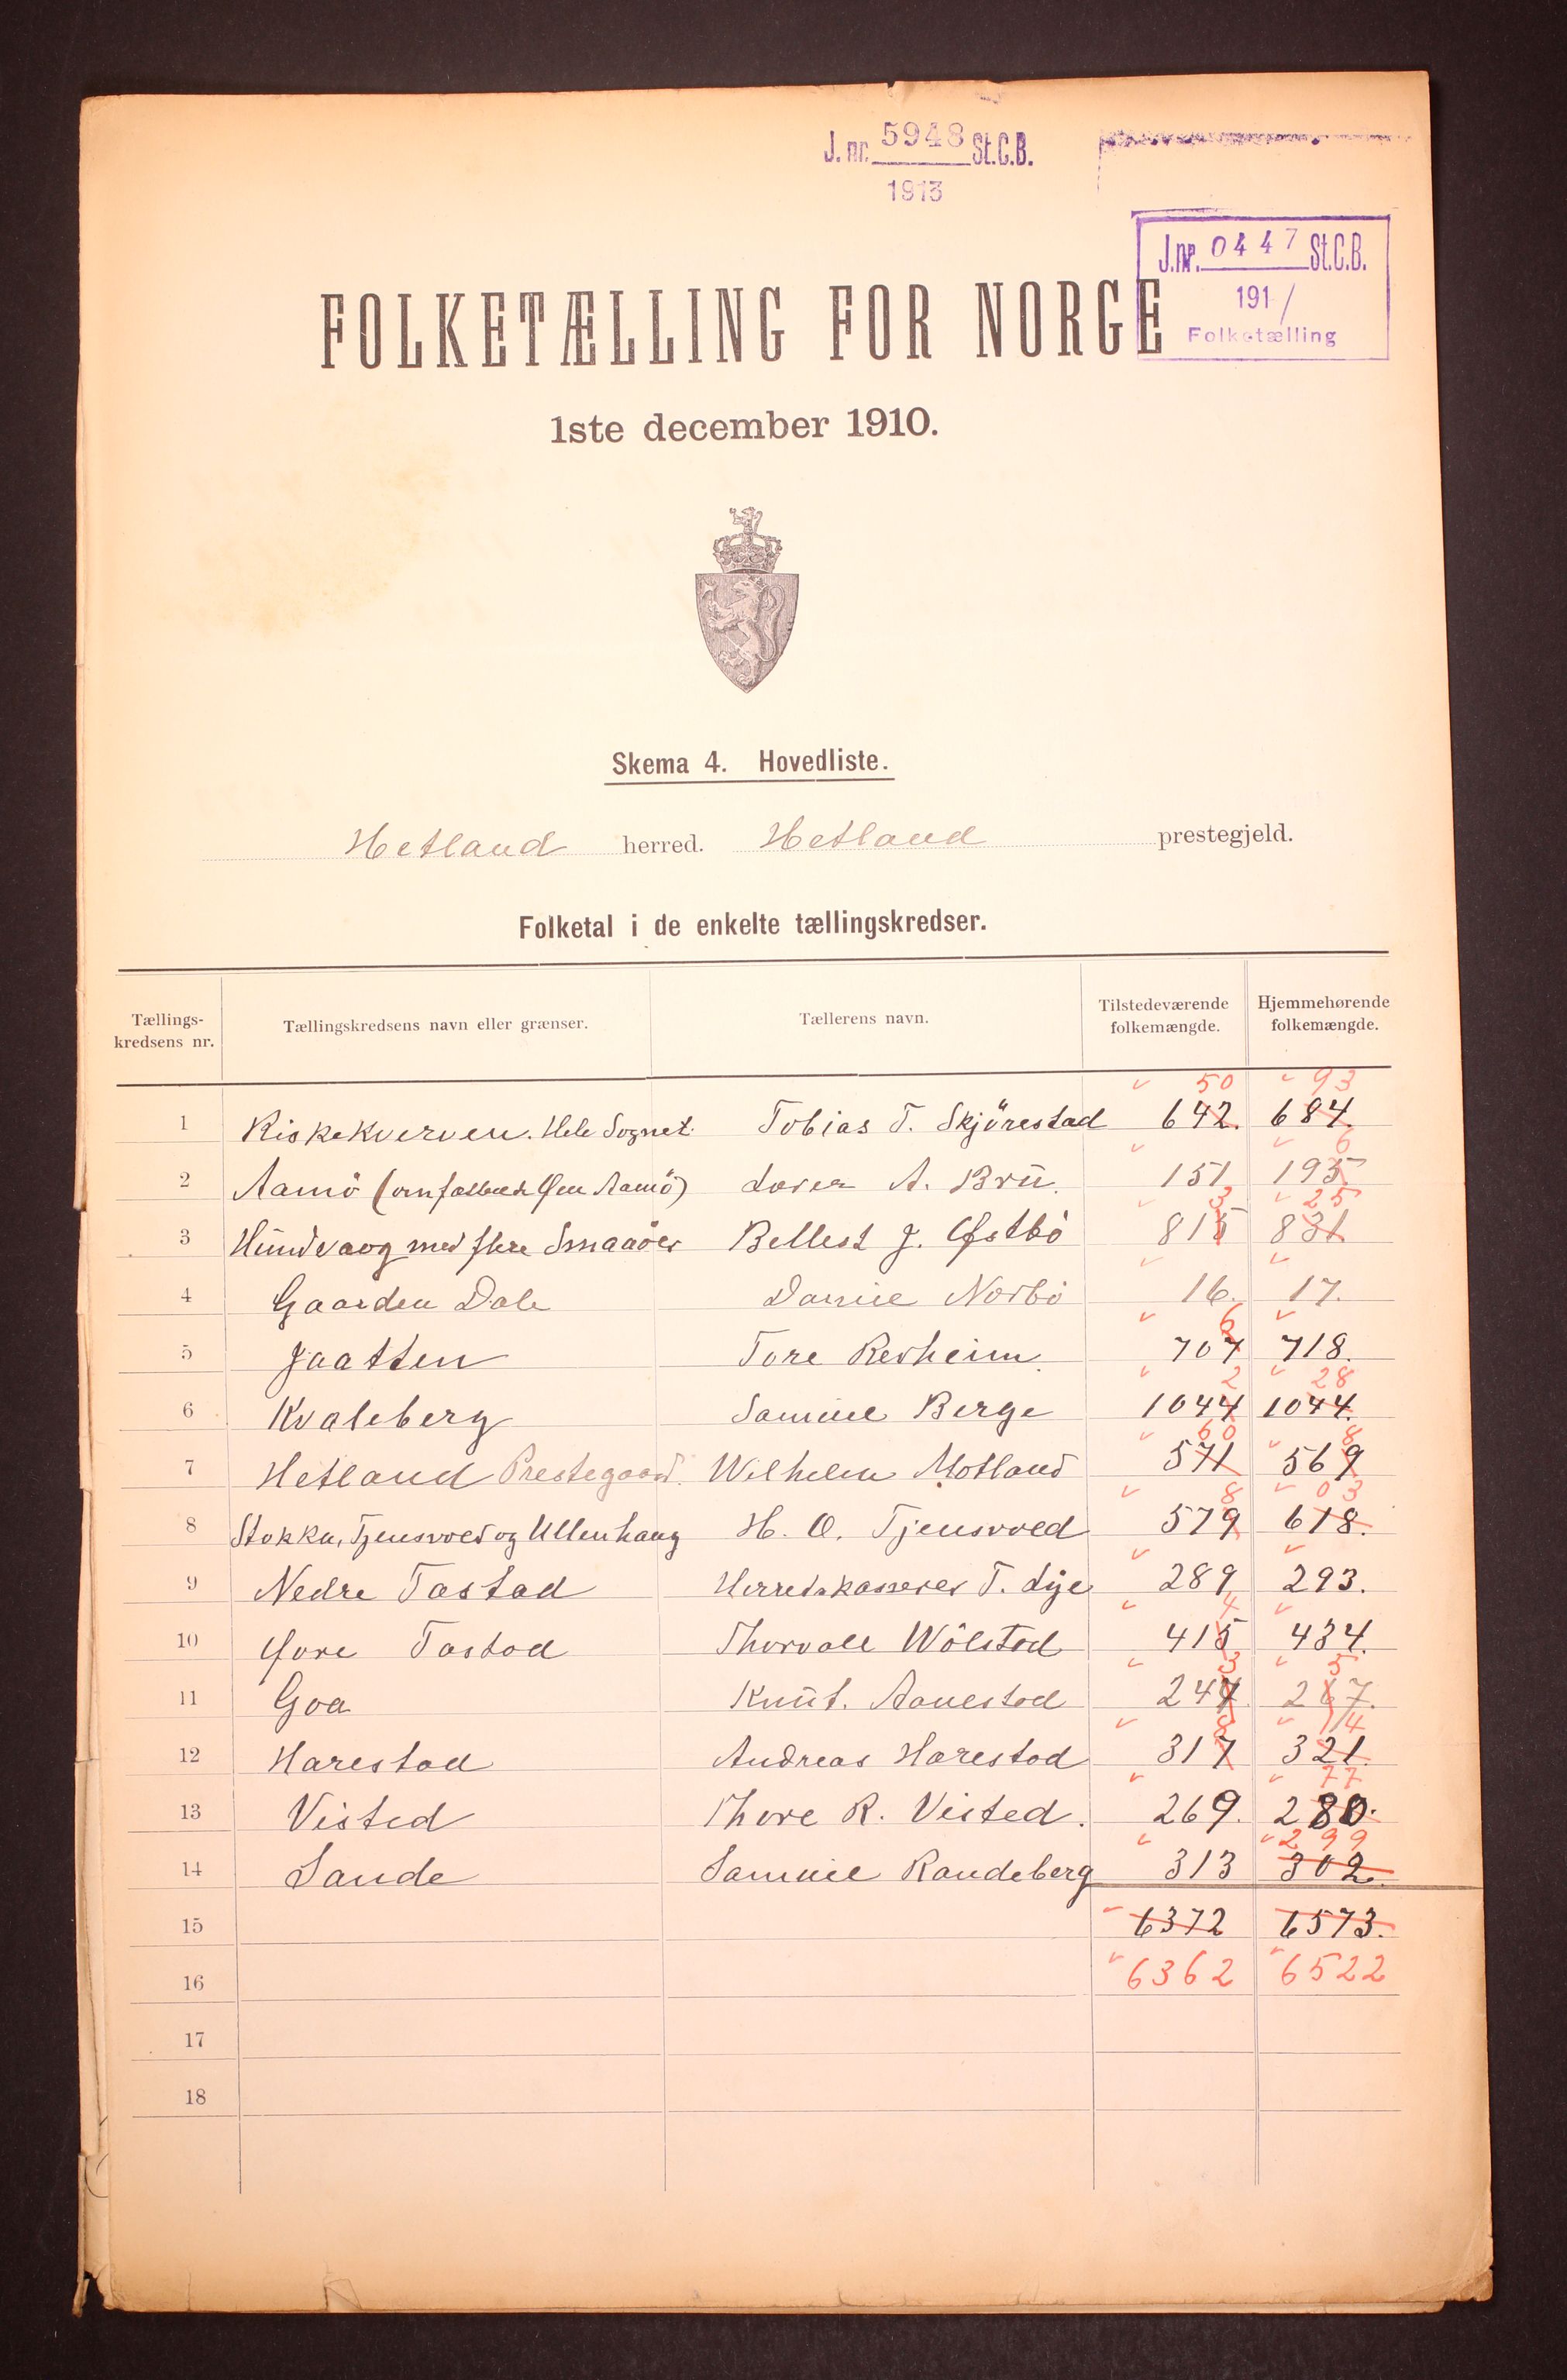 J. nr. 5948 St.C.B.
1913
J.nr. 0447 St.C.B.
191/
Folketælling
FOLKETÆLLING FOR NORGE
1ste december 1910.
Skema 4. Hovedliste.
Hetland herred. Hetland prestegjeld.
Folketal i de enkelte tællingskredser.
Tællings-kredsens nr. Tællingskredsens navn eller grænser. Tællerens navn. Tilstedeværende folkemængde. Hjemmehørende folkemængde.
50 93
1 Riskekverven. Hele Sognet. Tobias T. Skjörestad 642. 684.
6
2 Aamö (omfattende Øen Aamö) A. Brü. 151 195
3 25
3 Hundvaag med flere Smaaöer Bellest J. Østbö 815 831
4 Gaarden Dale Daniel Norbö 16. 17.
6
5 Jaatten Tore Revheim. 707 718.
2 28
6 Kvaleberg Samuel Berge 1044 1044.
60 8
7 Hetland Prestegaard. Wilhelm Motland 571 569
8 03
8 Stokka, Tjensvold og Ullenhaug H. O. Tjensvold 579 618.
9 Nedre Tastad Herredskasserer T. Lye 289 293.
4
10 Øvre Tastad Thorvald Wölstad 415 434.
3 5
11 Goa Knut. Aanestad 247 267.
8 14
12 Harestad Andreas Harestad 317 321.
77
13 Visted Thore R. Visted. 269. 280.
299
14 Sande Samuel Randeberg 313 302.
15 6372 6573.
16 6362 6522
17
18